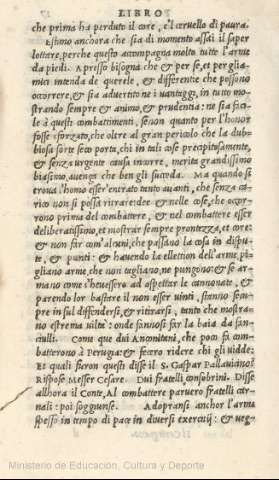 LIBRO
che prima ha perduto il core, e'l ceruello di paura.
Estimo anchora che sia di momento assai il saper
lottare, perche questo accompagna molto tutte l'arme
da piedi. Apresso bisogna che & per se, et per gli a-
mici intenda de querele, & differentie che possono
occorrere, & sia aduertito ne i uantaggi, in tutto mo-
strando sempre et animo, & prudentia: ne sia faci-
le à questi combattimenti, se non quanto per l'honor
fosse sforzato, che oltre al gran pericolo che la dub-
biosa sorte seco porta, chi in tali cose precipitosamente,
& senza urgente causa incorre, merita grandissimo
biasimo, auenga che ben gli succeda. Ma quando si
troua l'homo esser'entrato tanto auanti, che senza ca-
rico non si possa ritrarsi dee & nelle cose, che occor-
rono prima del combattere, & nel combattere esser
deliberatissimo, et mostrar sempre prontezza, et core:
& non far com'alcuni, che passano la cosa in dispu-
te, & punti: & hauendo la ellettion dell'arme, pi-
gliano arme, che non tagliano, ne pungono: & se ar-
mano come s'hauessero ad aspettar le cannonate, &
parendo lor bastare il non esser uinti, stanno sem-
pre in sul diffendersi, & ritirarsi, tanto che mostra-
no estrema uiltà: onde fannosi far la baia da fan-
ciulli. Come que dui Anconitani, che poco fa com-
batterono à Perugia: & fecero ridere chi gli uidde:
Et quali furon questi disse il S. Gaspar Pallauicino?
Rispose Messer Cesare. Dui fratelli consobrini. Disse
allhora il Conte, Al combattere paruero fratelli car-
nali: poi soggiunse. Adopransi anchor l'arme
spesso in tempo di pace in diuersi exercitij: & ueg-
Ministerio de Educación, Cultura y Deporte